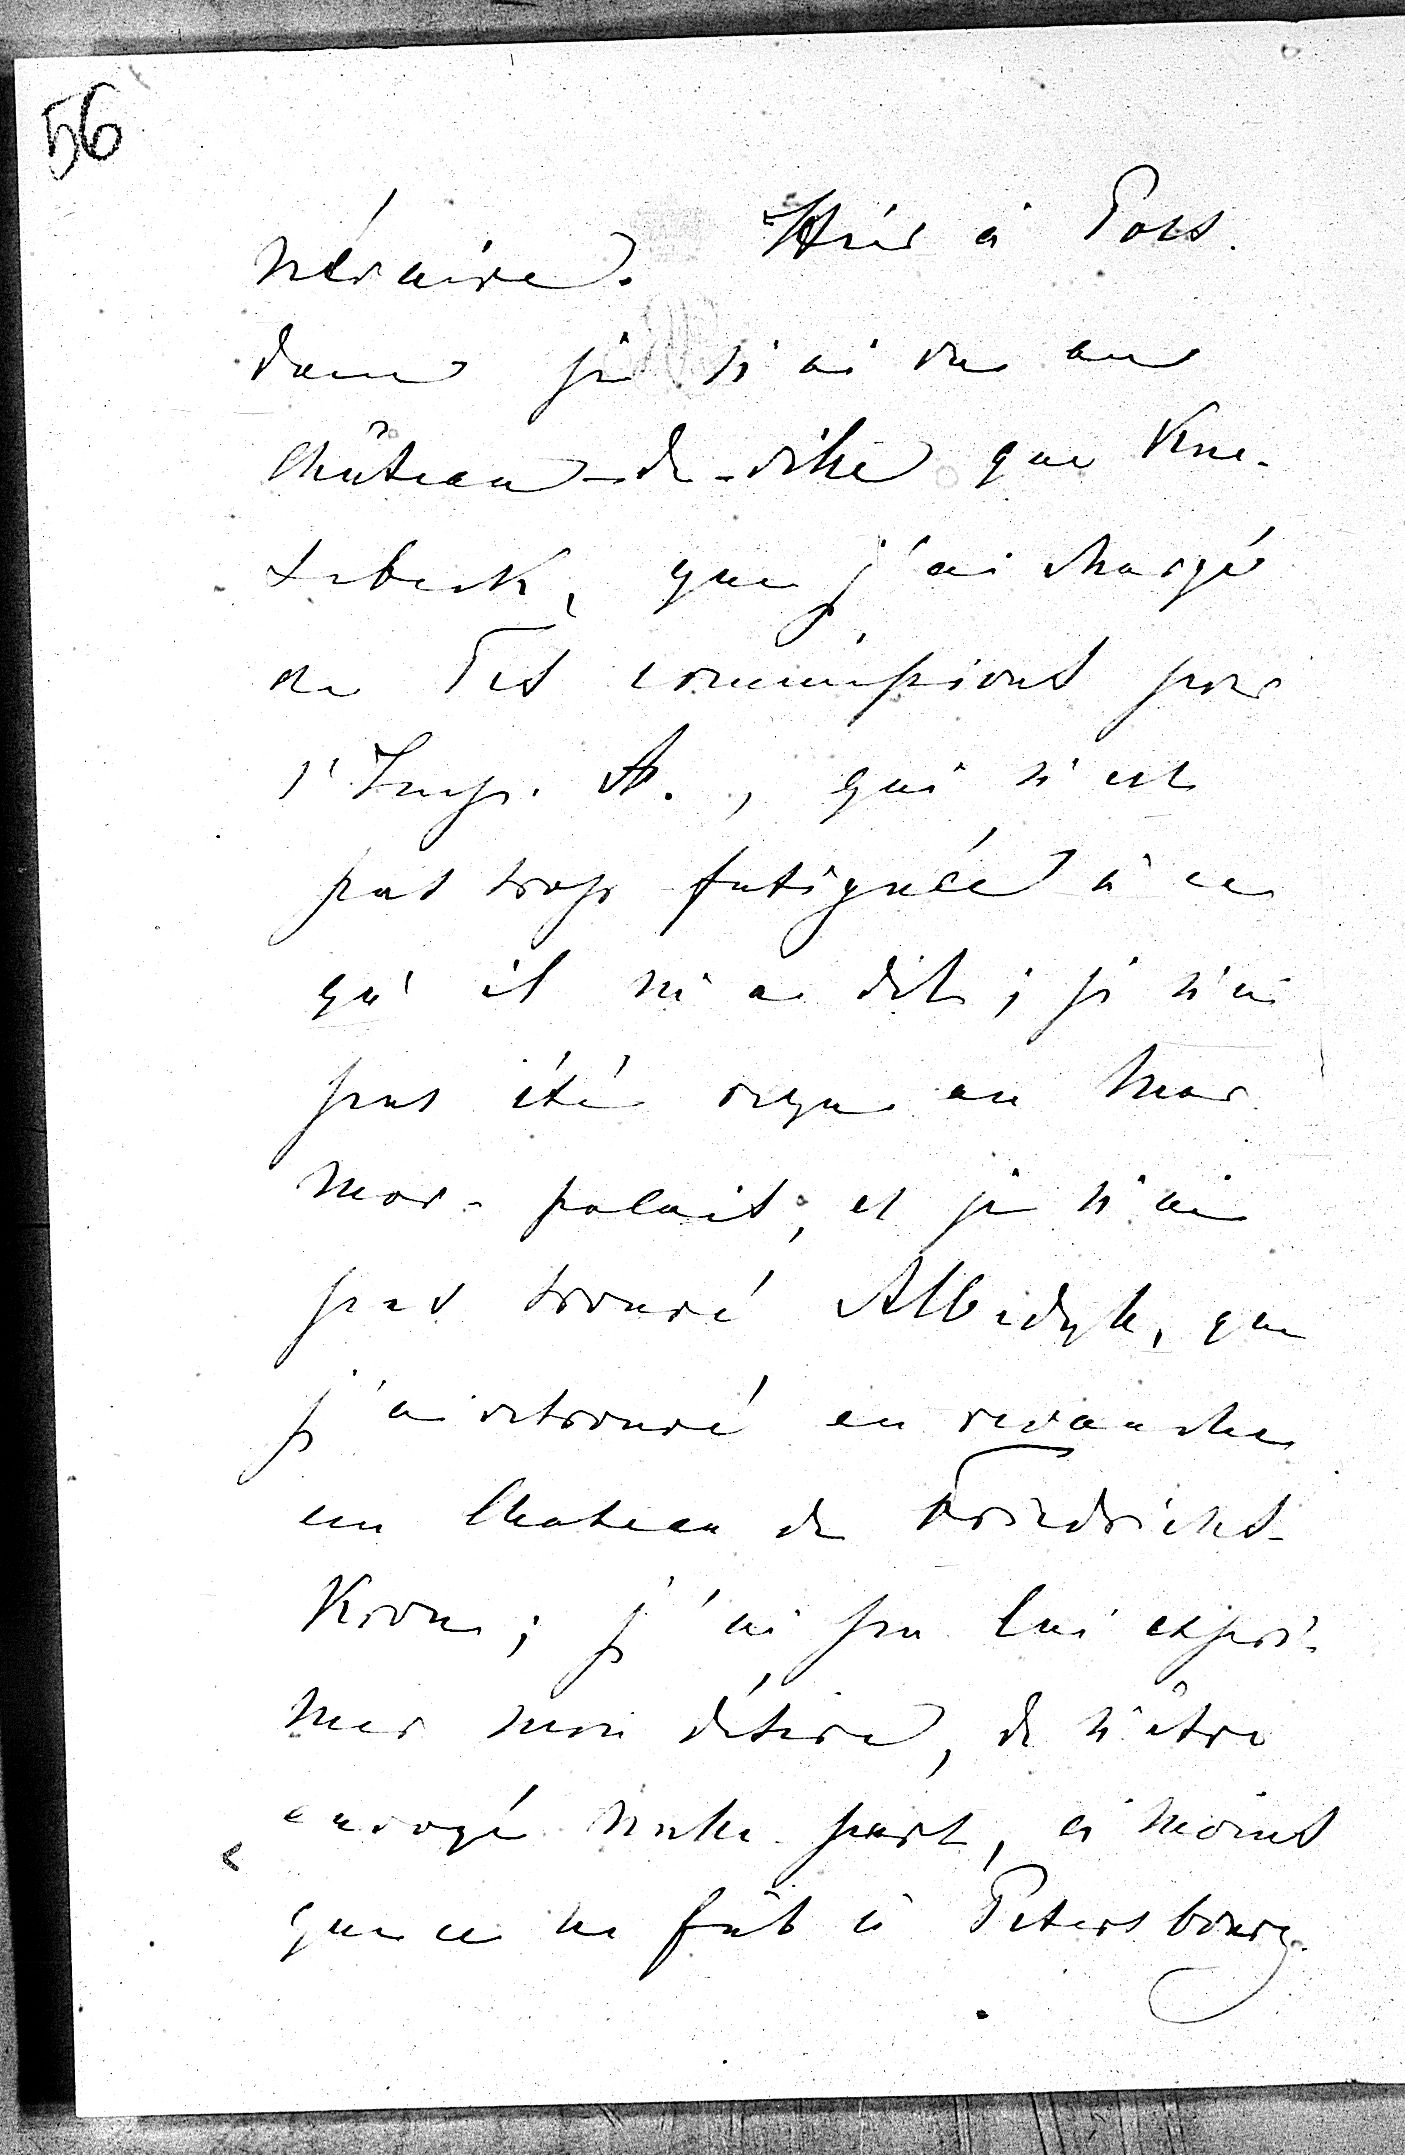 56
néraire. Hier à Pots.
dam je n'ai vu au
Château-de-ville que Kne-
sebeck, que j'ai chargé
de Tes commissions pour
l'Imp. A., qui n'est
pas trop fatiguée à ce
qu'il m'a dit; je n'ai
pas été reçu au Mar
mor-palais; et je n'ai
pas trouvé Albedyll, que
j'ai retrouvé en revanche
au Chateau de Friedrichs-
Kron; j'ai pu lui expri-
mer mon désire, de n'être
envoyé nulle part, à moins
que ce ne fût à Petersbourg.